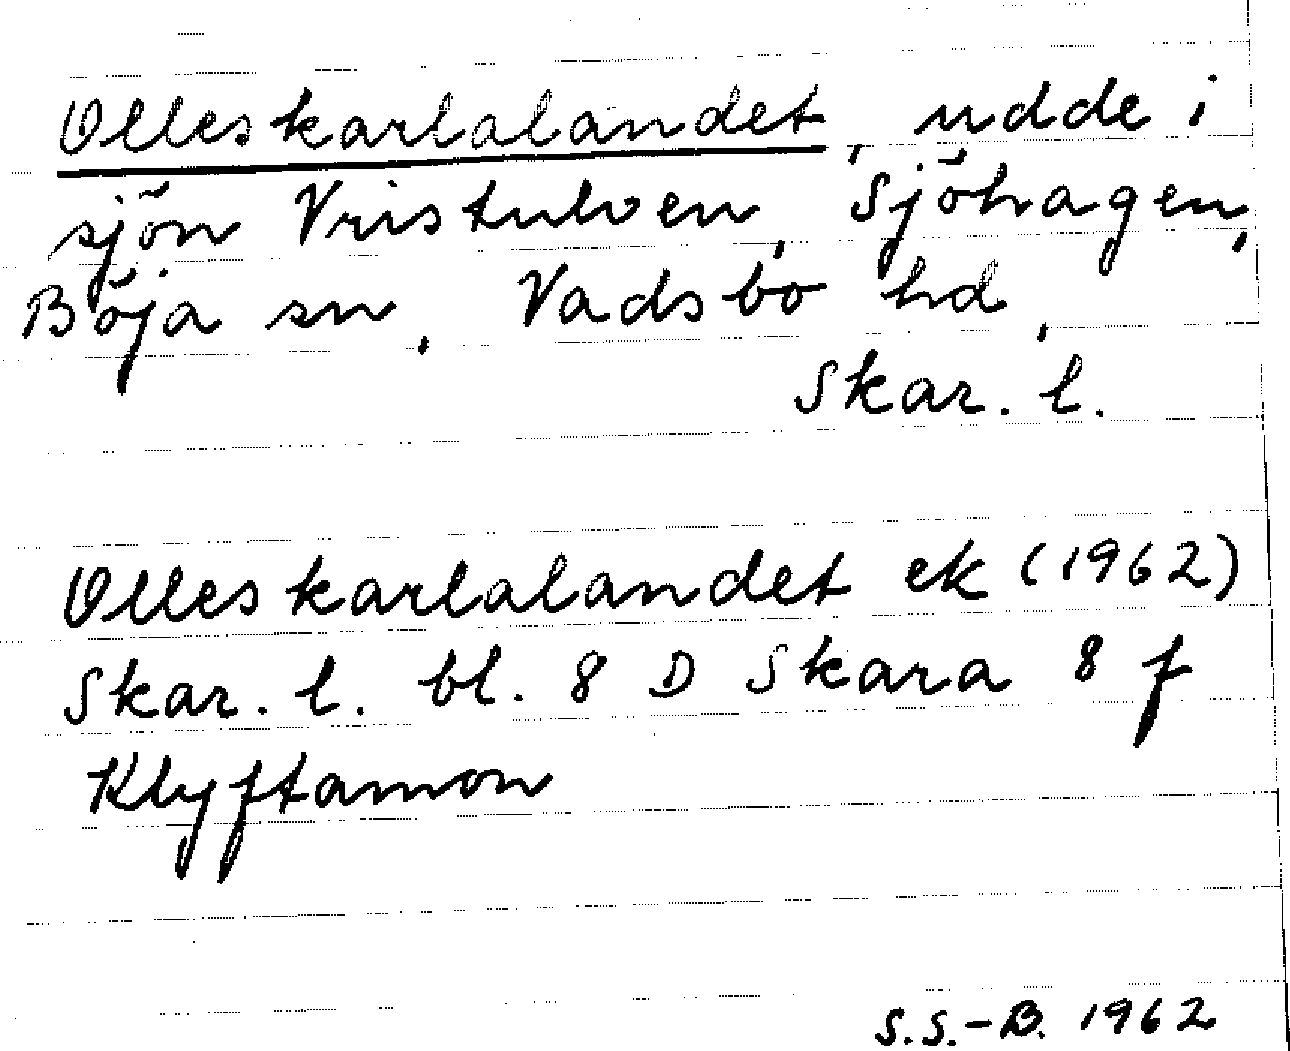 Olleskarlalandet, udde i
sjön Vristulven, Sjöhagen,
Böja sn, Vadsbo hd,
Skar. l.
Olleskarlalandet ek (1962)
Skar. l. bl. 8 D Skara 8 f
Klyftamon
S.S.-B. 1962